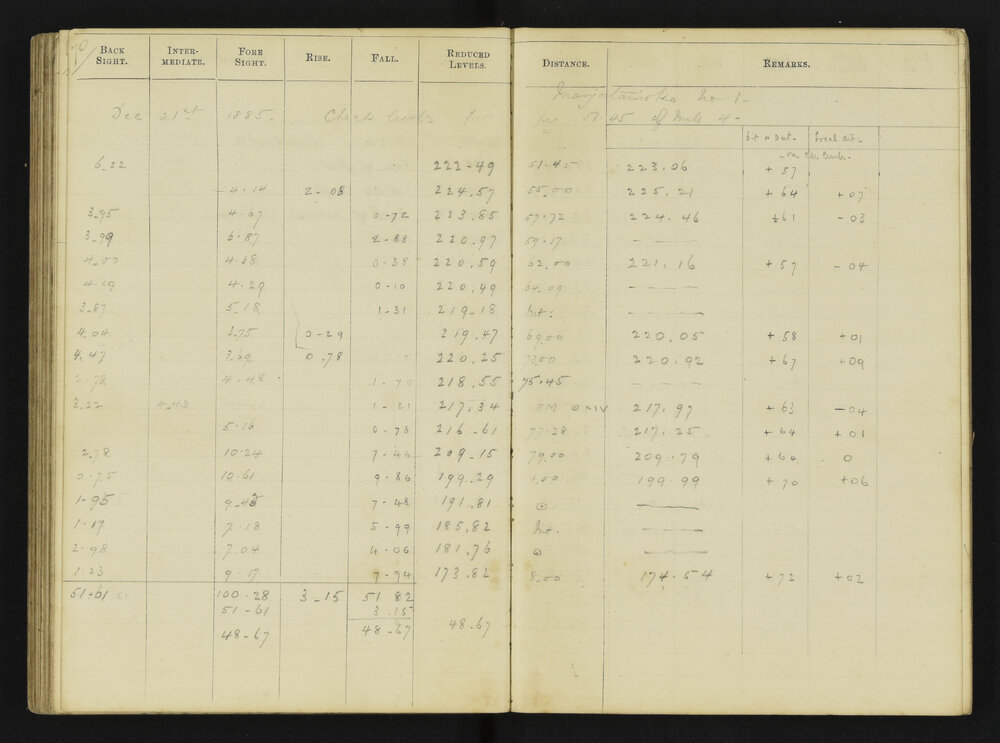 70
BACK SIGHT. INTER-MEDIATE. FORE SIGHT. RISE. FALL. REDUCED LEVELS. DISTANCE. REMARKS.
Dec 21st 1885. Check levels from No 1-
peg 51.45 of Mile 4-
diff - Local dif-
- on
6.22 222-49 51.45 223.06 +57
4.14 2-08 224.57 55.00 225.21 +64 +07
3-95 4.67 0-72 223.85 57.72 224.46 +61 -03
3-99 6.87 2-88 220.97 59.17 -
4-00 4.38 0-38 220.59 62.00 221.16 +57 -04
4.19 4.29 0-10 220.49 64.00 -
3-87 5.18 1-31 219-18 Int: -
4-04 3.75 0-29 219.47 69.00 220.05 +58 +01
4.47 3.69 0.78 220.25 72.00 220.92 +67 +09
2.78 4.48 1-70 218.55 75.45 -
3.22 4-43 1-21 217.34 BM ⊙ XIV 217.97 +63 -04
5.16 0-73 216-61 77.28 217.25 +64 +01
2.78 10.24 7-46 209.15 79.00 209.79 +64 0
0.75 10.61 9-86 199.29 1.00 199.99 +70 +06
1-95 9.43 7-48 191.81 ⊙ -
1.19 7.18 5-99 185.82 Int. -
2.98 7.04 4-06 181.76 ⊙ -
1.23 9.17 7-94 173.82 8.00 174.54 +72 +02
51-61 100.28 3-15 51 82
51-61 3.15
48-67 48-67 48.67